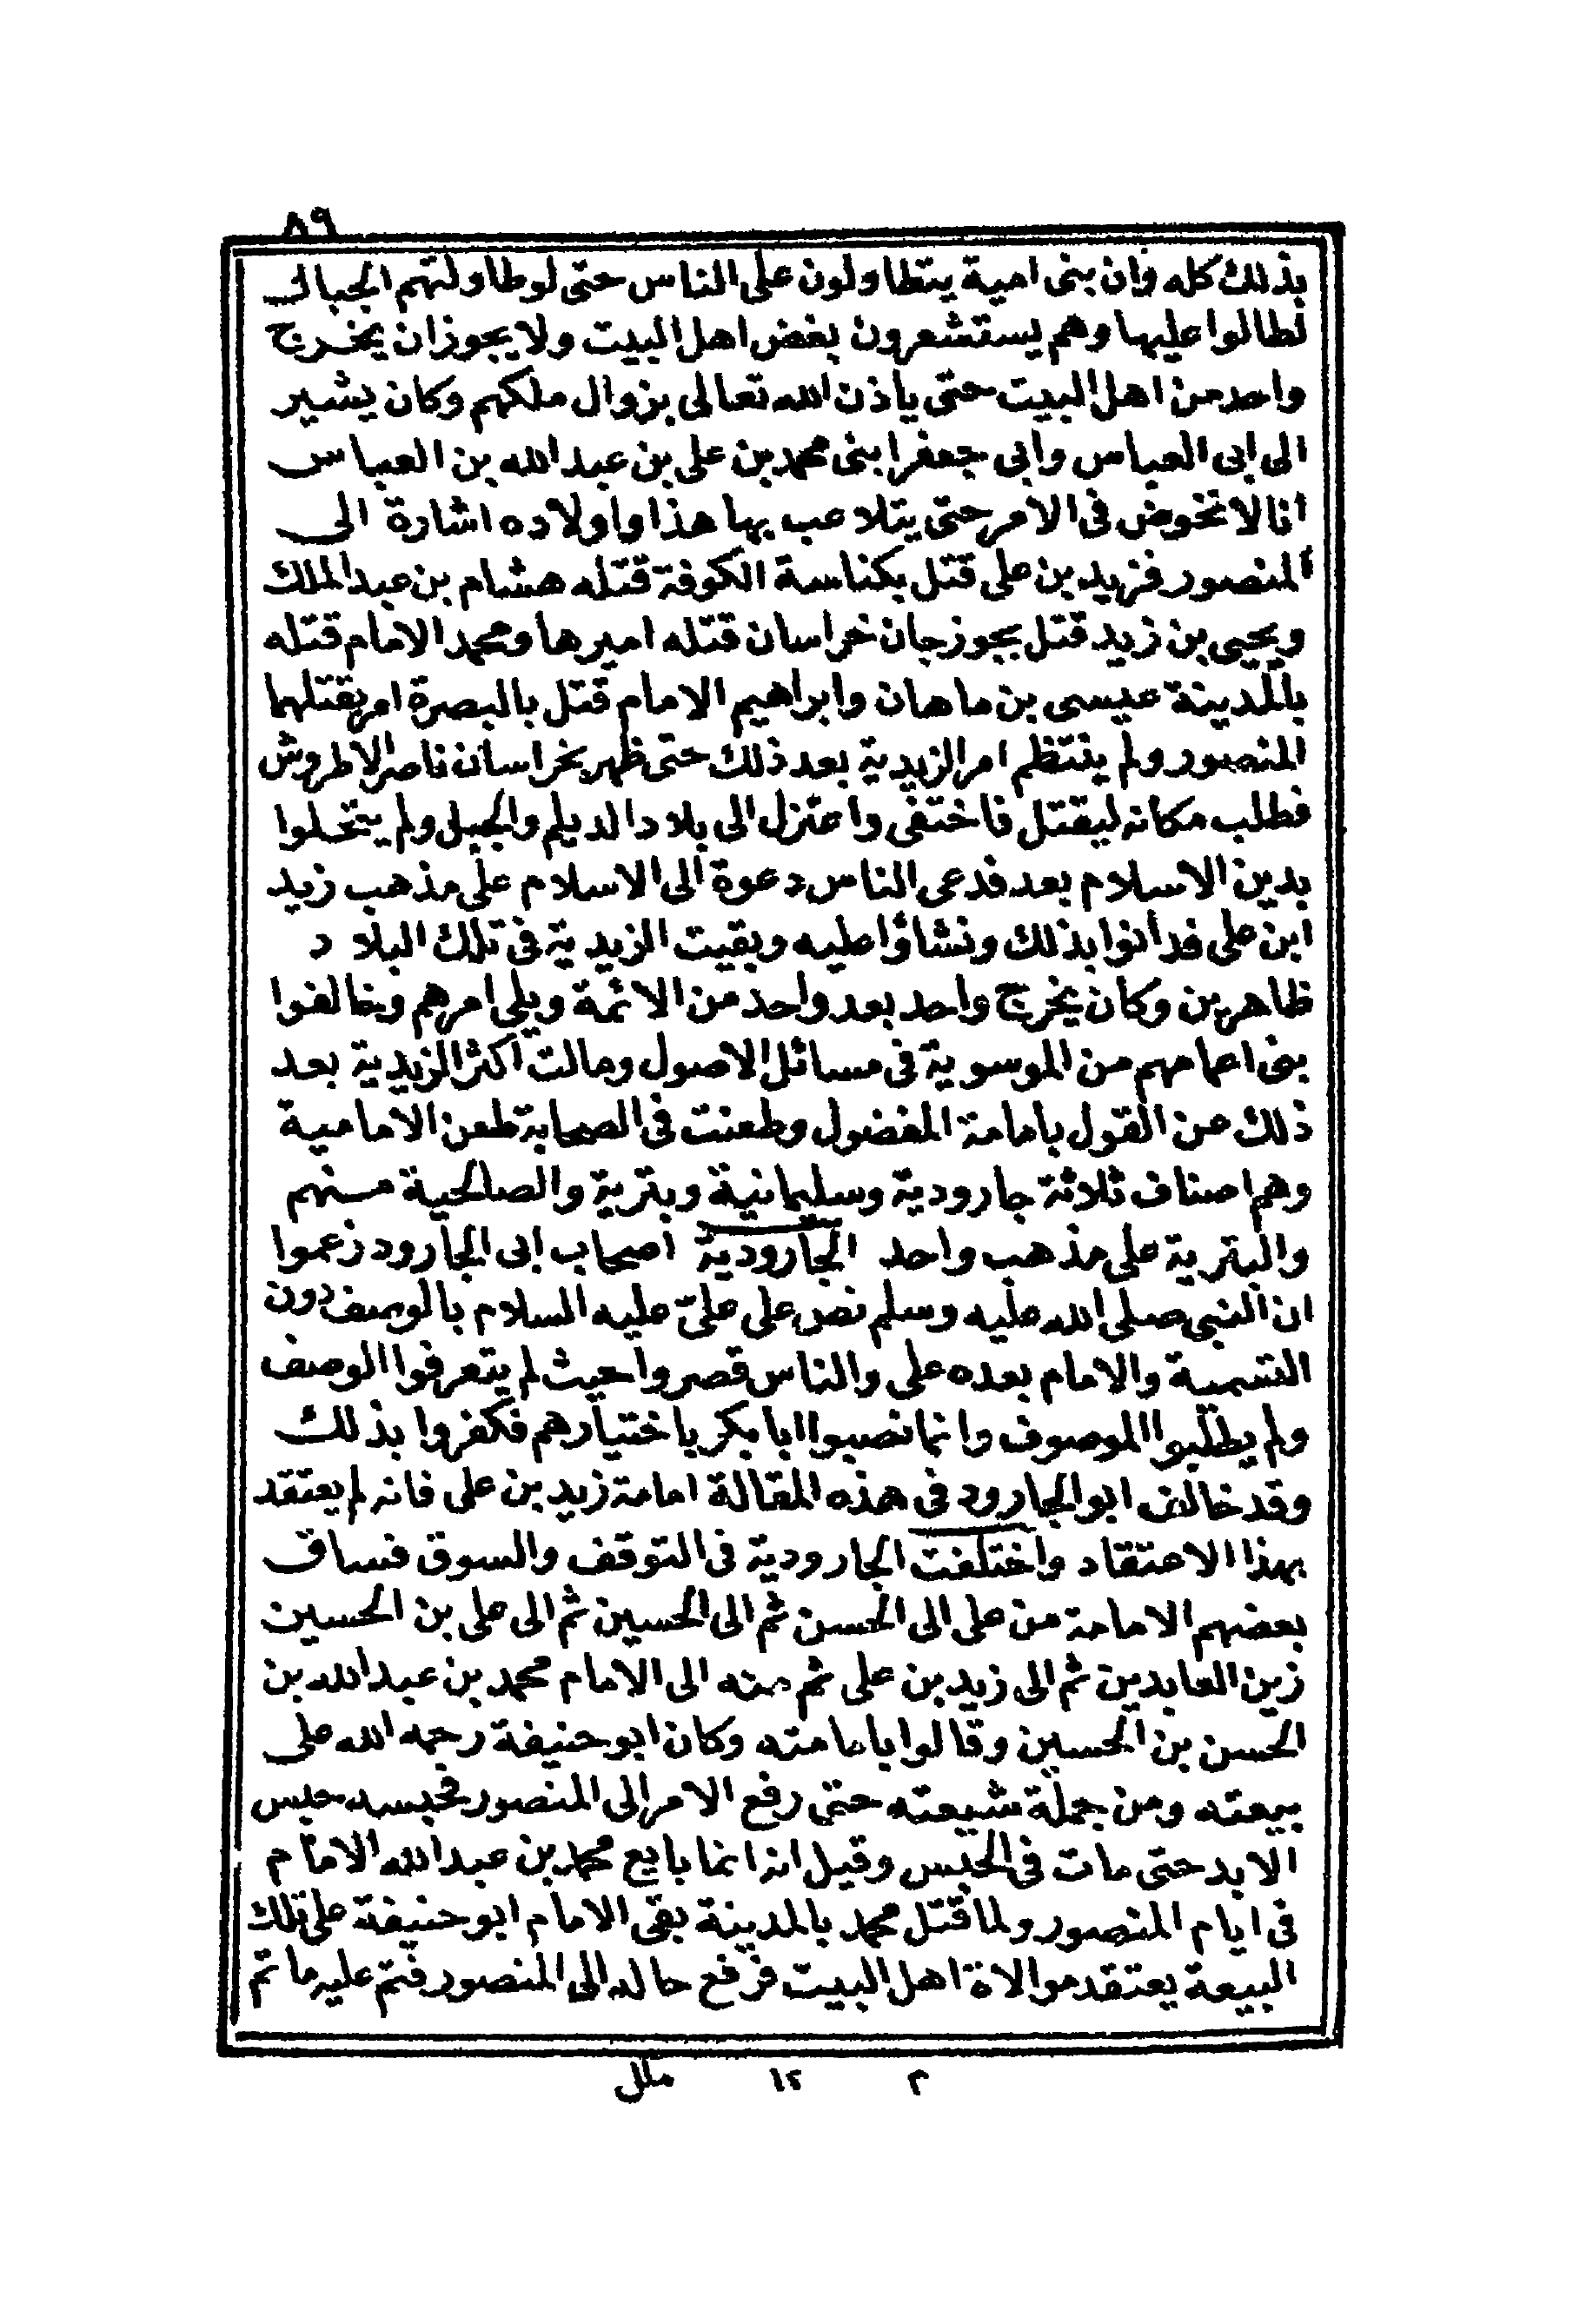 ٨٩
بذلك كله وان بنى امية يتطاولون على الناس حتى لو طاولتهم الجبال
لطالوا عليها وهم يستشعرون بغض اهل البيت ولا يجوز ان يخرج
واحد من اهل البيت حتى ياذن الله تعالى بزوال ملكهم وكان يشير
الى ابى العباس وابى جعفر ابنى محمد بن على بن عبد الله بن العباس
انا لا نخوض فى الامر حتى يتلاعب بها هذا واولاده اشارة الى
المنصور فزيد بن على قتل بكناسة الكوفة قتله هشام بن عبد الملك
ويحيى بن زيد قتل بجوزجان خراسان قتله اميرها ومحمد الامام قتله
بالمدينة عيسى بن ماهان وابراهيم الامام قتل بالبصرة امر بقتلهما
المنصور ولم ينتظم امر الزيدية بعد ذلك حتى ظهر بخراسان ناصر الاطروش
فطلب مكانه ليقتل فاختفى واعتزل الى بلاد الديلم والجبل ولم يتحلوا
بدين الاسلام بعد فدعى الناس دعوة الى الاسلام على مذهب زيد
ابن على فدانوا بذلك ونشاؤا عليه وبقيت الزيدية فى تلك البلاد
ظاهرين وكان يخرج واحد بعد واحد من الائمة ويلى امرهم وخالفوا
بنى اعمامهم من الموسوية فى مسائل الاصول ومالت اكثر الزيدية بعد
ذلك عن القول بامامة المفضول وطعنت فى الصحابة طعن الامامية
وهم اصناف ثلاثة جارودية وسليمانية وبترية والصالحية منهم
والبترية على مذهب واحد الجارودية اصحاب ابى الجارود زعموا
ان النبى صلى الله عليه وسلم نص على علىّ عليه السلام بالوصف دون
التسمية والامام بعده على والناس قصروا حيث لم يتعرفوا الوصف
ولم يطلبوا الموصوف وانما نصبوا ابا بكر باختيارهم فكفروا بذلك
وقد خالف ابو الجارود فى هذه المقالة امامة زيد بن على فانه لم يعتقد
بهذا الاعتقاد واختلفت الجارودية فى التوقف والسوق فساق
بعضهم الامامة من على الى الحسن ثم الى الحسين ثم الى على بن الحسين
زين العابدين ثم الى زيد بن على ثم منه الى الامام محمد بن عبد الله بن
الحسن بن الحسين وقالوا بامامته وكان ابو حنيفة رحمه الله على
بيعته ومن جملة شيعته حتى رفع الامر الى المنصور فحبسه حبس
الابد حتى مات فى الحبس وقيل انه انما بايع محمد بن عبد الله الامام
فى ايام المنصور ولما قتل محمد بالمدينة بقى الامام ابو حنيفة على تلك
البيعة يعتقد موالاة اهل البيت فرفع حاله الى المنصور فتم عليه ما تم
م ١٢ ملل